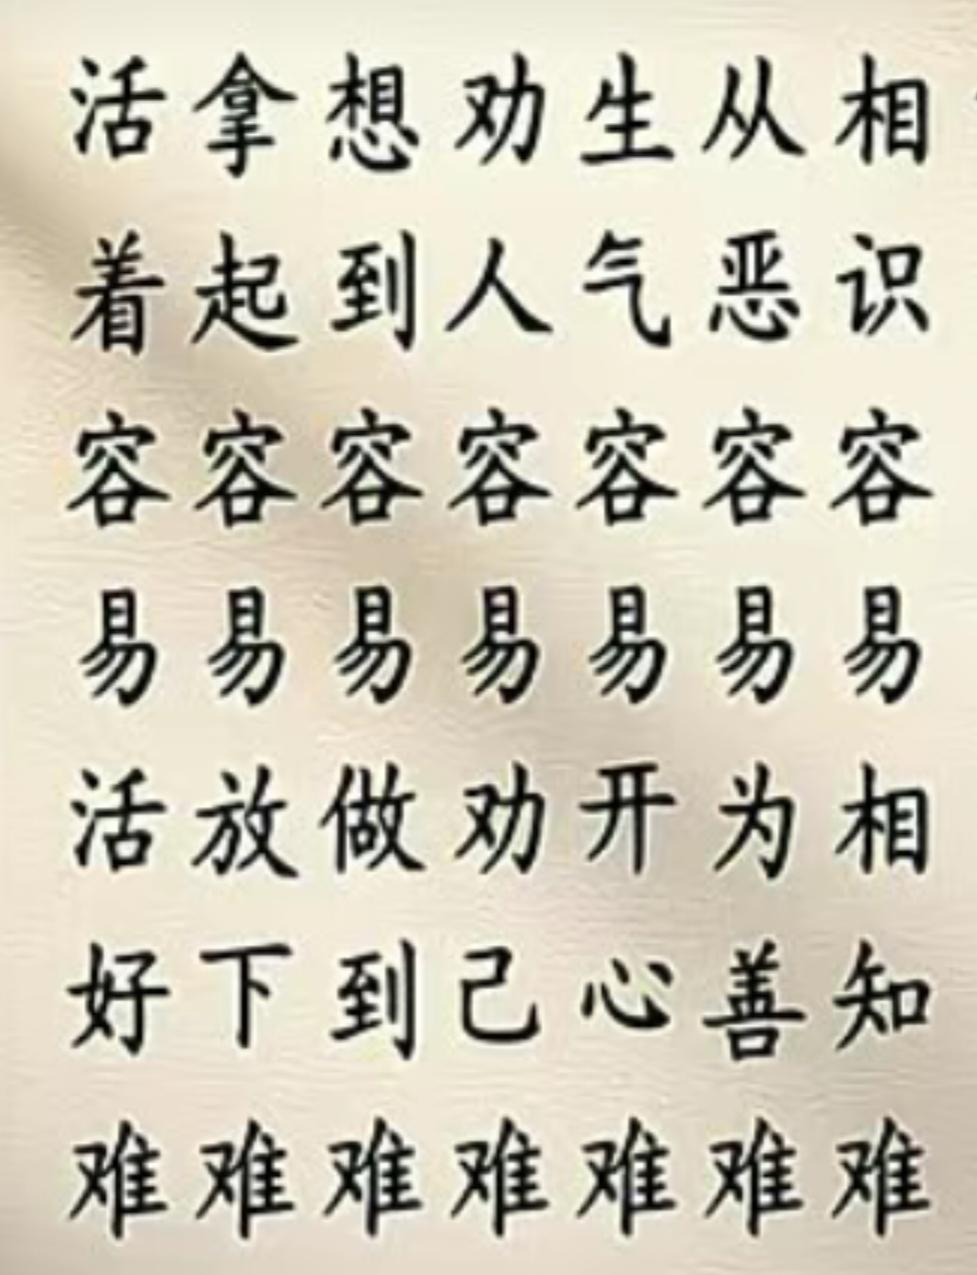 相识容易相知难
从恶容易为善难
生气容易开心难
劝人容易劝己难
想到容易做到难
拿起容易放下难
活着容易活好难